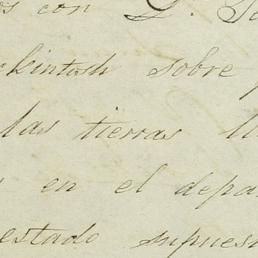 os con D.
kintosh sobre
las tierras
en el depa
estado supues